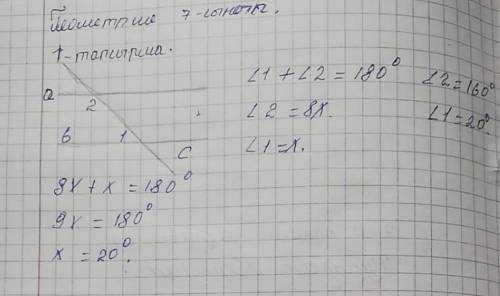 Геометрия 7-сыныбы.
1-тапсырма.
a
2
b 1
c
∠1 + ∠2 = 180°
∠2 = 8x.
∠1 = x.
∠2 = 160°
∠1 = 20°
8x + x = 180°
9x = 180°
x = 20°.